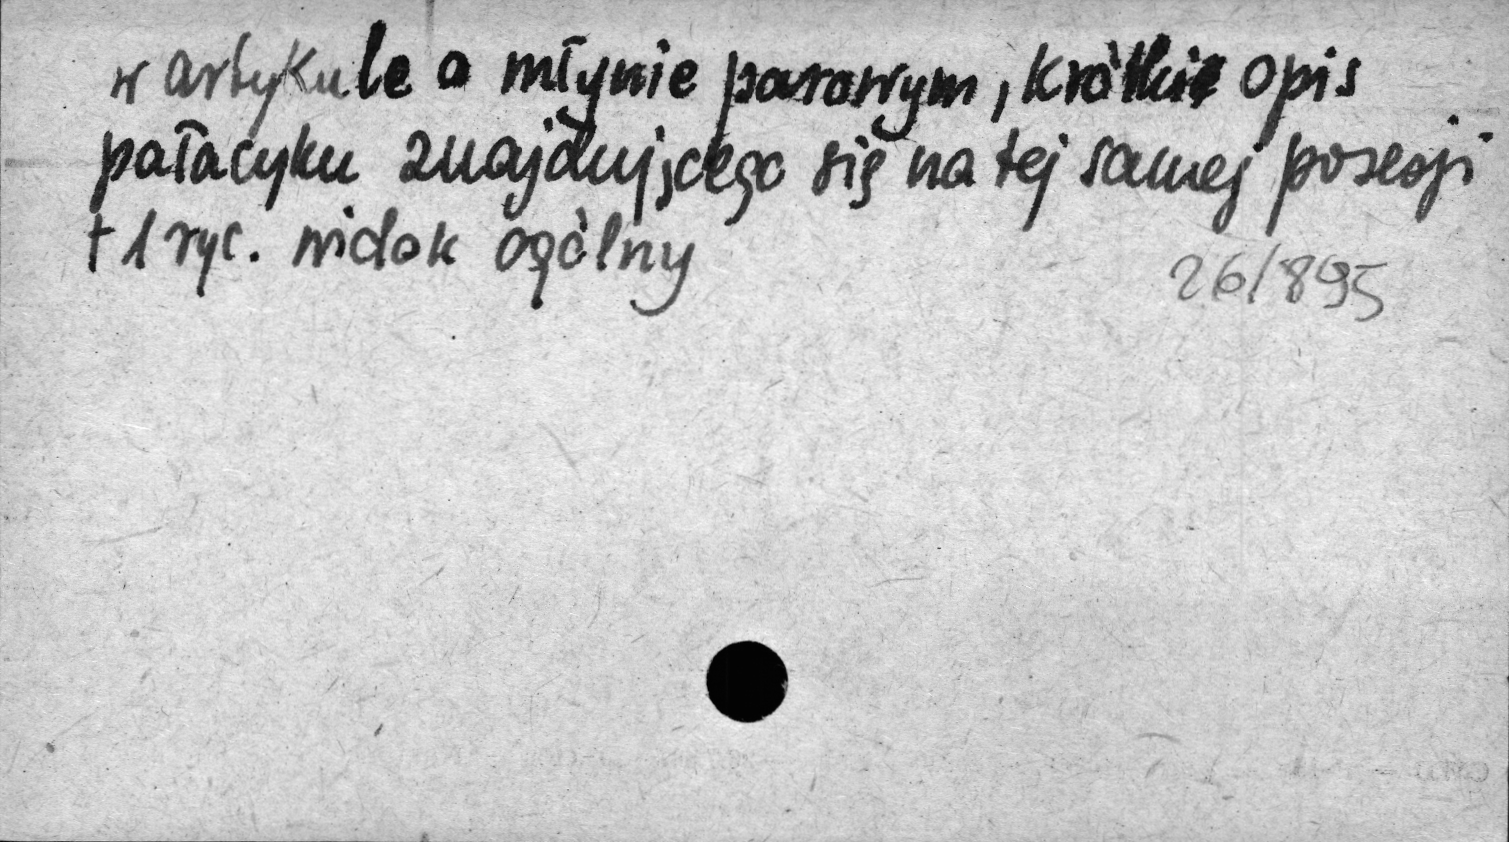 w artykule o młynie parowym, krótki opis
pałacyku znajdującego się na tej samej posesji
+ 1 ryc. widok ogólny
26/895